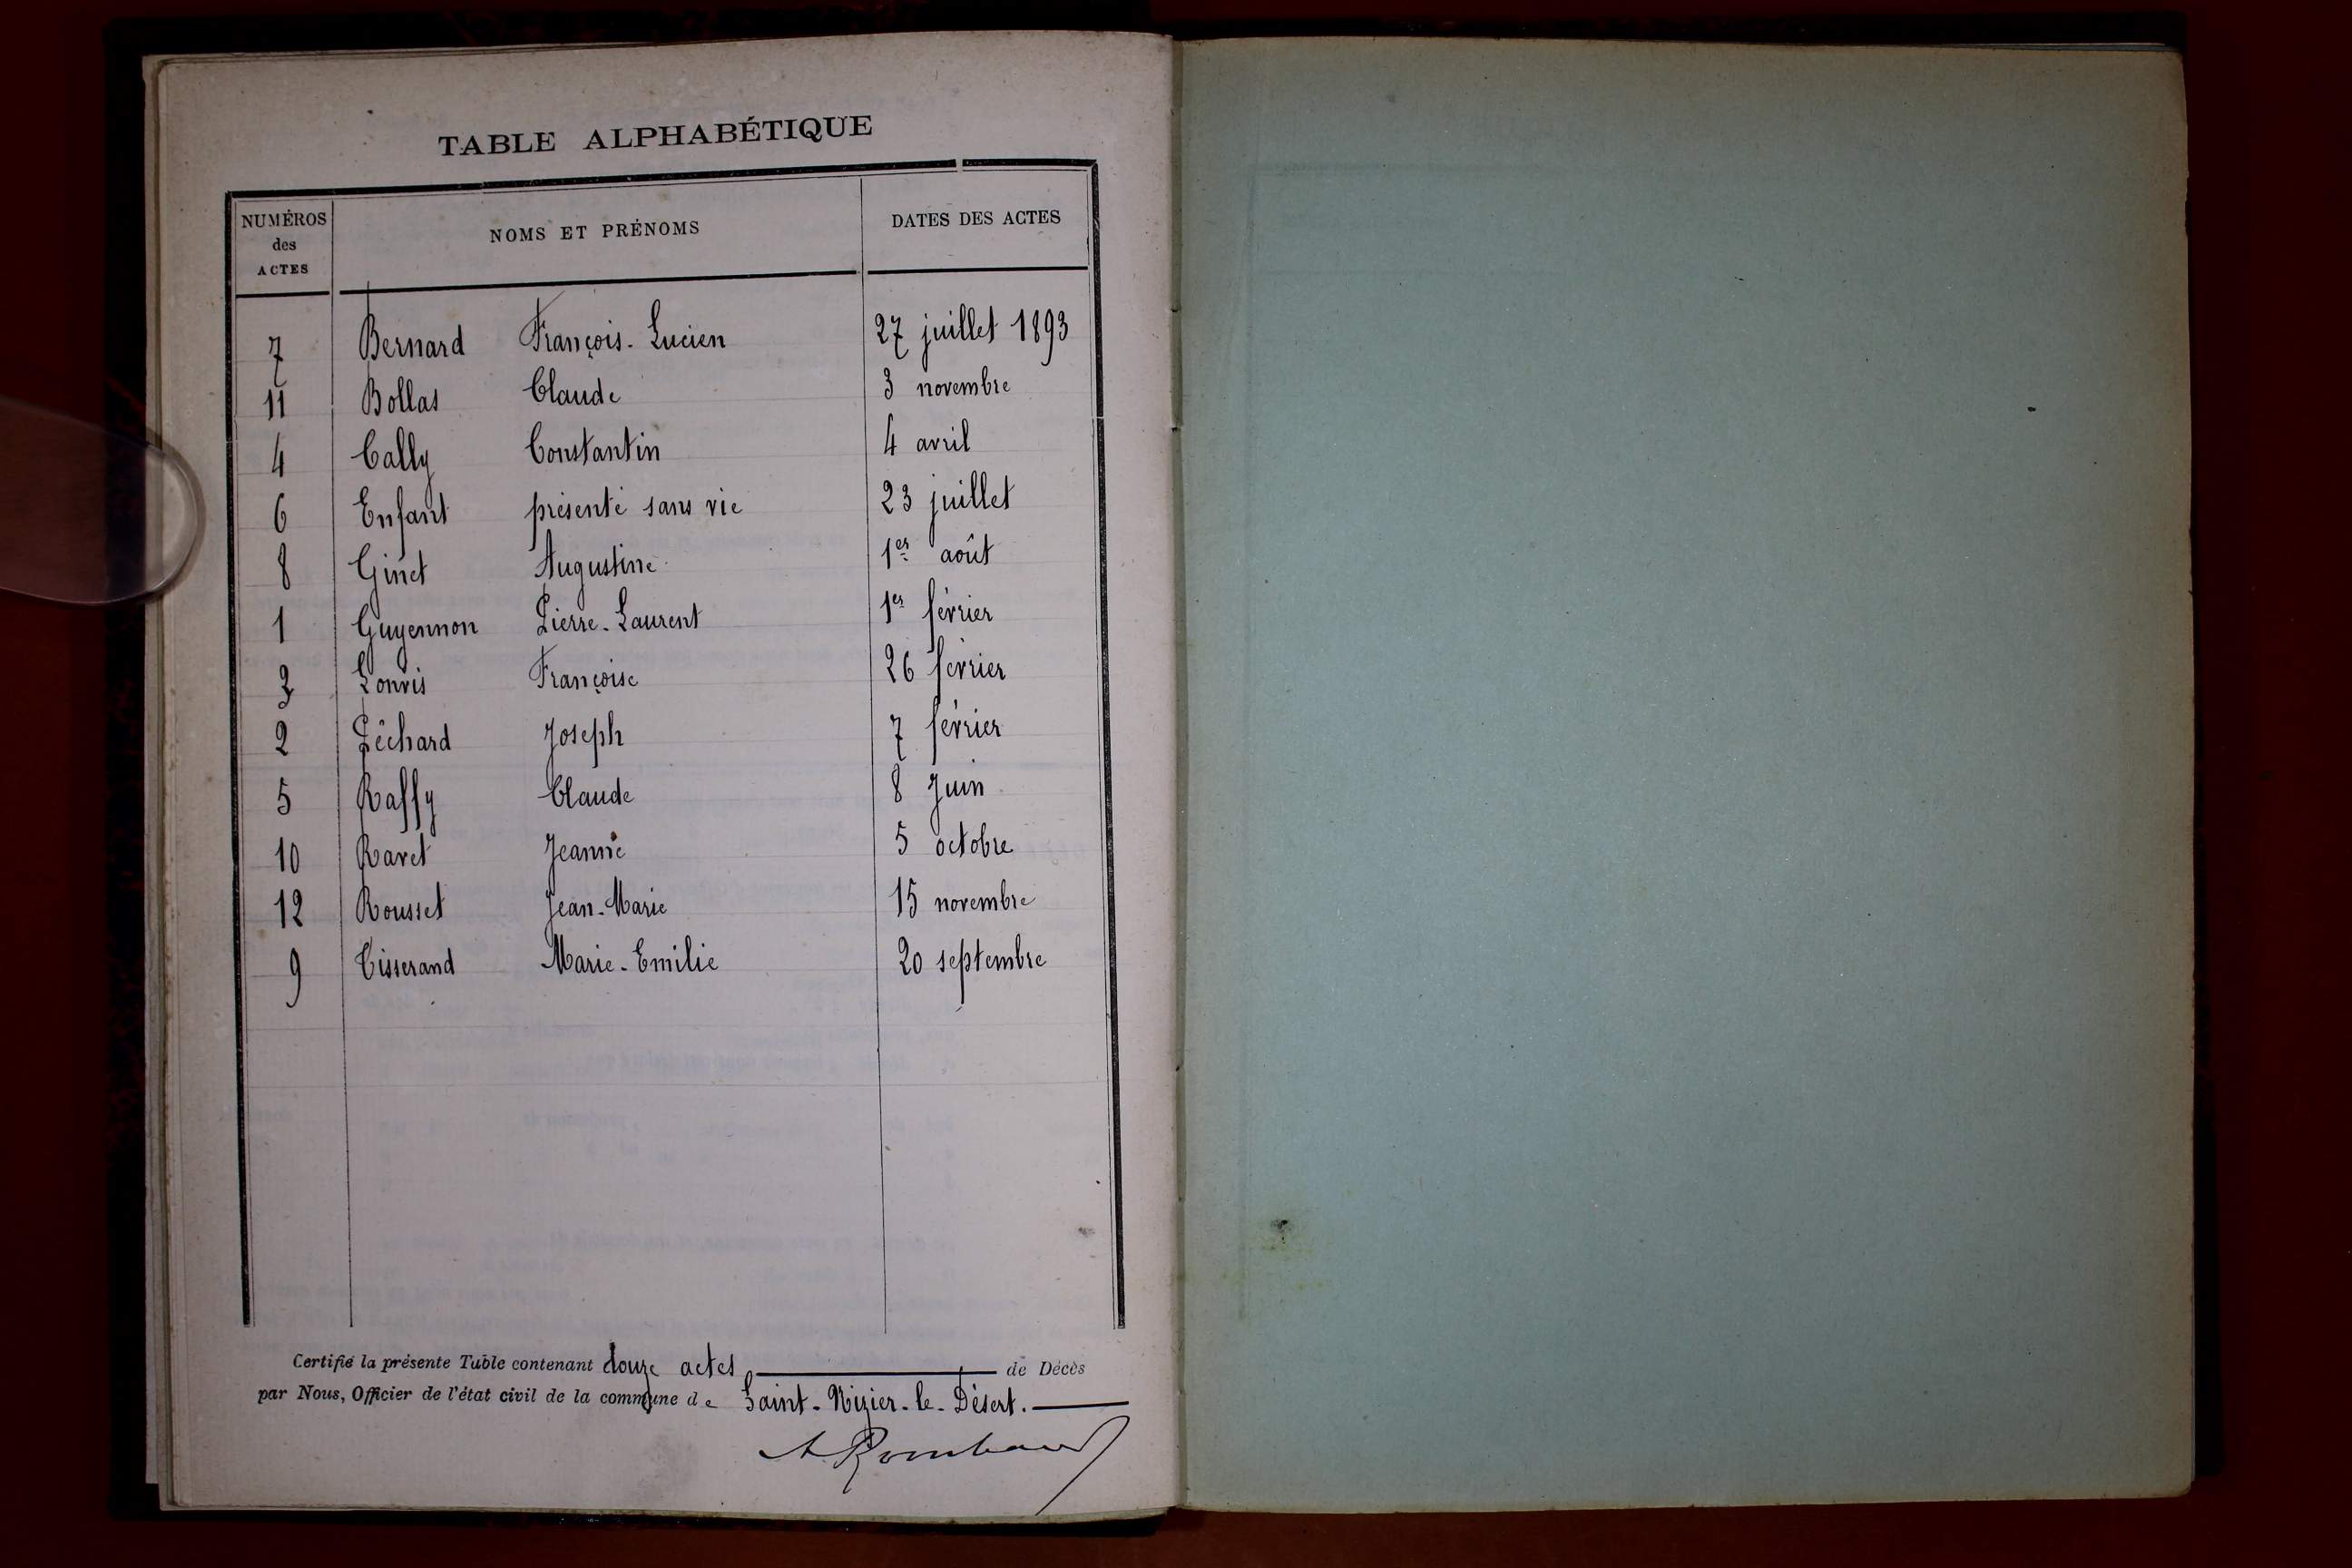 TABLE ALPHABÉTIQUE
NUMÉROS des ACTES NOMS ET PRÉNOMS DATES DES ACTES
7 Bernard François-Lucien 27 juillet 1893
11 Bollas Claude 3 novembre
4 Cally Constantin 4 avril
6 Enfant présenté sans vie 23 juillet
8 Ginet Augustine 1er août
1 Guyennon Pierre-Laurent 1er février
3 Louvis Françoise 26 février
2 Pêchard Joseph 7 février
5 Raffy Claude 8 Juin
10 Ravet Jeanne 5 octobre
12 Rousset Jean-Marie 15 novembre
9 Tisserand Marie-Emilie 20 septembre
Certifié la présente Table contenant douze actes de Décès
par Nous, Officier de l'état civil de la commune de Saint-Nizier-le-Désert.